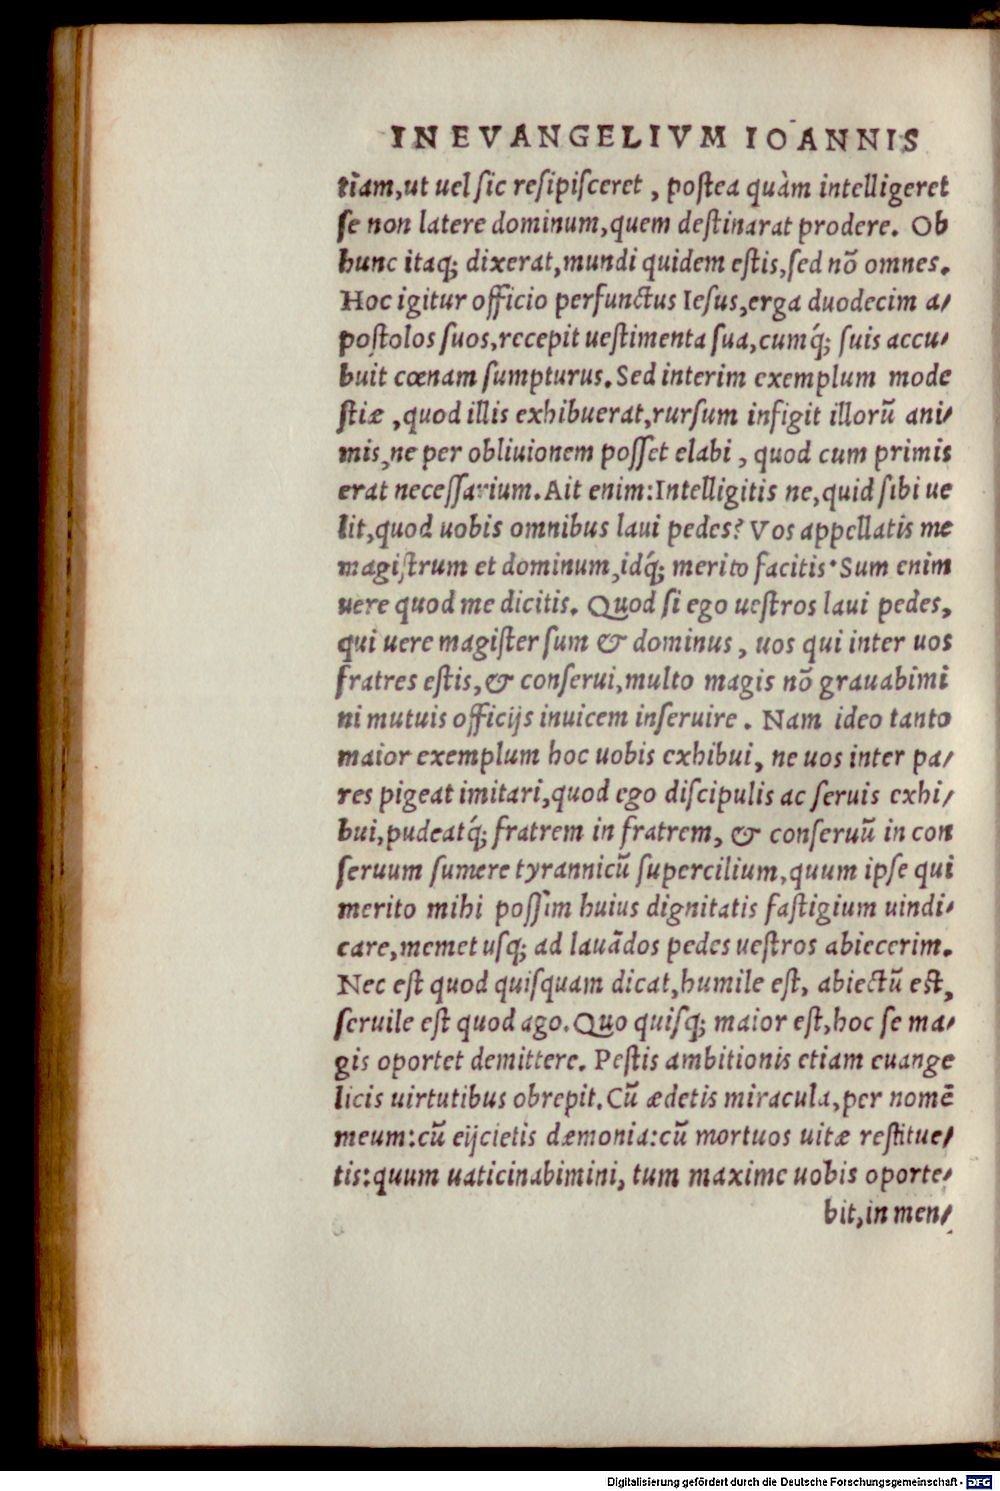 IN EVANGELIVM IOANNIS
tiam,ut uel sic resipisceret, postea quàm intelligeret
se non latere dominum,quem destinarat prodere. Ob
hunc itaq; dixerat,mundi quidem estis,sed nō omnes.
Hoc igitur officio perfunctus Iesus,erga duodecim a/
postolos suos,recepit uestimenta sua,cumq́; suis accu/
buit cœnam sumpturus. Sed interim exemplum mode
stiæ ,quod illis exhibuerat,rursum infigit illorū ani/
mis,ne per obliuionem posset elabi, quod cum primis
erat necessarium. Ait enim:Intelligitis ne,quid sibi ue
lit,quod uobis omnibus laui pedes? Vos appellatis me
magistrum et dominum,idq́; merito facitis. Sum enim
uere quod me dicitis. Quod si ego uestros laui pedes,
qui uere magister sum & dominus, uos qui inter uos
fratres estis,& conserui,multo magis nō grauabimi
ni mutuis officijs inuicem inseruire. Nam ideo tanto
maior exemplum hoc uobis exhibui, ne uos inter pa/
res pigeat imitari,quod ego discipulis ac seruis exhi/
bui,pudeatq́; fratrem in fratrem, & conseruū in con
seruum sumere tyrannicū supercilium,quum ipse qui
merito mihi possim huius dignitatis fastigium uindi/
care,memet usq; ad lauādos pedes uestros abiecerim.
Nec est quod quisquam dicat,humile est, abiectū est,
seruile est quod ago. Quo quisq; maior est,hoc se ma/
gis oportet demittere. Pestis ambitionis etiam euange
licis uirtutibus obrepit. Cū ædetis miracula,per nomē
meum:cū eijcietis dæmonia:cū mortuos uitæ restitue/
tis:quum uaticinabimini, tum maxime uobis oporte/
bit,in men/
Digitalisierung gefördert durch die Deutsche Forschungsgemeinschaft - DFG